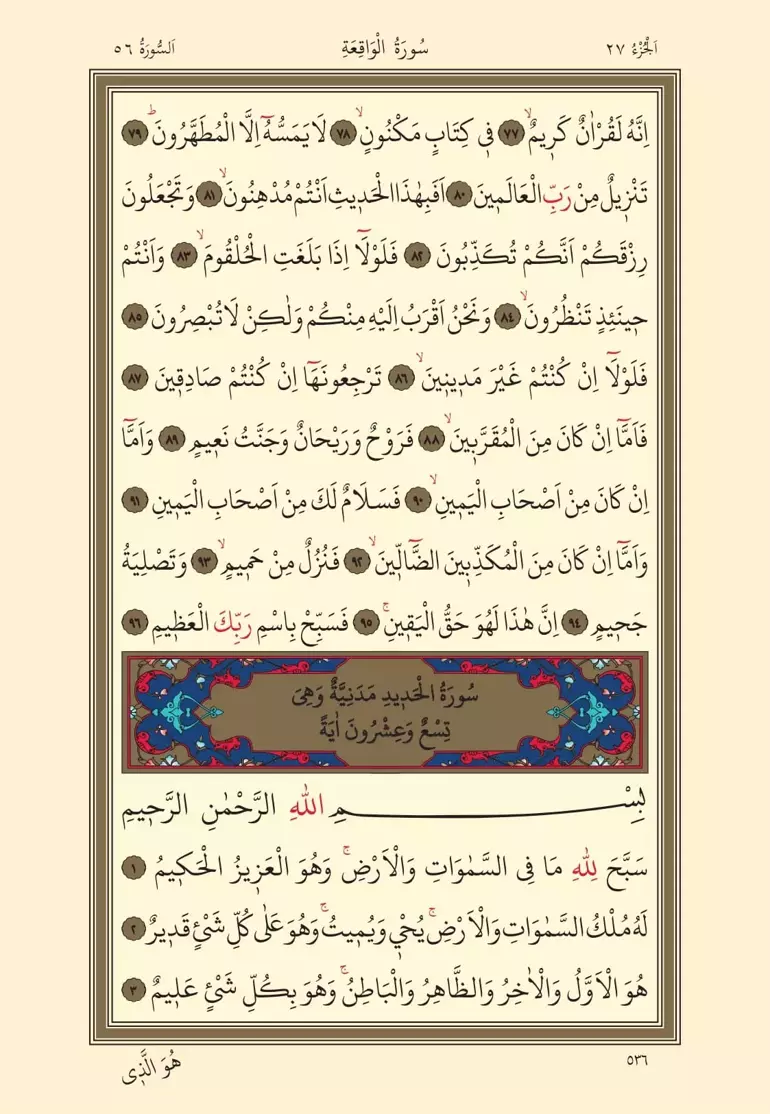 اَلْجُزْءُ ٢٧ سُورَةُ الْوَاقِعَةِ اَلسُّورَةُ ٥٦
اِنَّهُ لَقُرْاٰنٌ كَر۪يمٌۙ ﴿٧٧﴾ ف۪ي كِتَابٍ مَكْنُونٍۙ ﴿٧٨﴾ لَا يَمَسُّهُٓ اِلَّا الْمُطَهَّرُونَۜ ﴿٧٩﴾
تَنْز۪يلٌ مِنْ رَبِّ الْعَالَم۪ينَ ﴿٨٠﴾ اَفَبِهٰذَا الْحَد۪يثِ اَنْتُمْ مُدْهِنُونَۙ ﴿٨١﴾ وَتَجْعَلُونَ
رِزْقَكُمْ اَنَّكُمْ تُكَذِّبُونَ ﴿٨٢﴾ فَلَوْلَٓا اِذَا بَلَغَتِ الْحُلْقُومَۙ ﴿٨٣﴾ وَاَنْتُمْ
ح۪ينَئِذٍ تَنْظُرُونَۙ ﴿٨٤﴾ وَنَحْنُ اَقْرَبُ اِلَيْهِ مِنْكُمْ وَلٰكِنْ لَا تُبْصِرُونَ ﴿٨٥﴾
فَلَوْلَٓا اِنْ كُنْتُمْ غَيْرَ مَد۪ين۪ينَۙ ﴿٨٦﴾ تَرْجِعُونَهَٓا اِنْ كُنْتُمْ صَادِق۪ينَ ﴿٨٧﴾
فَاَمَّٓا اِنْ كَانَ مِنَ الْمُقَرَّب۪ينَۙ ﴿٨٨﴾ فَرَوْحٌ وَرَيْحَانٌ وَجَنَّتُ نَع۪يمٍ ﴿٨٩﴾ وَاَمَّٓا
اِنْ كَانَ مِنْ اَصْحَابِ الْيَم۪ينِۙ ﴿٩٠﴾ فَسَلَامٌ لَكَ مِنْ اَصْحَابِ الْيَم۪ينِ ﴿٩١﴾
وَاَمَّٓا اِنْ كَانَ مِنَ الْمُكَذِّب۪ينَ الضَّٓالّ۪ينَۙ ﴿٩٢﴾ فَنُزُلٌ مِنْ حَم۪يمٍۙ ﴿٩٣﴾ وَتَصْلِيَةُ
جَح۪يمٍ ﴿٩٤﴾ اِنَّ هٰذَا لَهُوَ حَقُّ الْيَق۪ينِۚ ﴿٩٥﴾ فَسَبِّحْ بِاسْمِ رَبِّكَ الْعَظ۪يمِ ﴿٩٦﴾
سُورَةُ الْحَد۪يدِ مَدَنِيَّةٌ وَهِيَ
تِسْعٌ وَعِشْرُونَ اٰيَةً
بِسْمِ اللّٰهِ الرَّحْمٰنِ الرَّح۪يمِ
سَبَّحَ لِلّٰهِ مَا فِي السَّمٰوَاتِ وَالْاَرْضِۚ وَهُوَ الْعَز۪يزُ الْحَك۪يمُ ﴿١﴾
لَهُ مُلْكُ السَّمٰوَاتِ وَالْاَرْضِۚ يُحْي۪ وَيُم۪يتُۚ وَهُوَ عَلٰى كُلِّ شَيْءٍ قَد۪يرٌ ﴿٢﴾
هُوَ الْاَوَّلُ وَالْاٰخِرُ وَالظَّاهِرُ وَالْبَاطِنُۚ وَهُوَ بِكُلِّ شَيْءٍ عَل۪يمٌ ﴿٣﴾
٥٣٦ هُوَ الَّذ۪ي